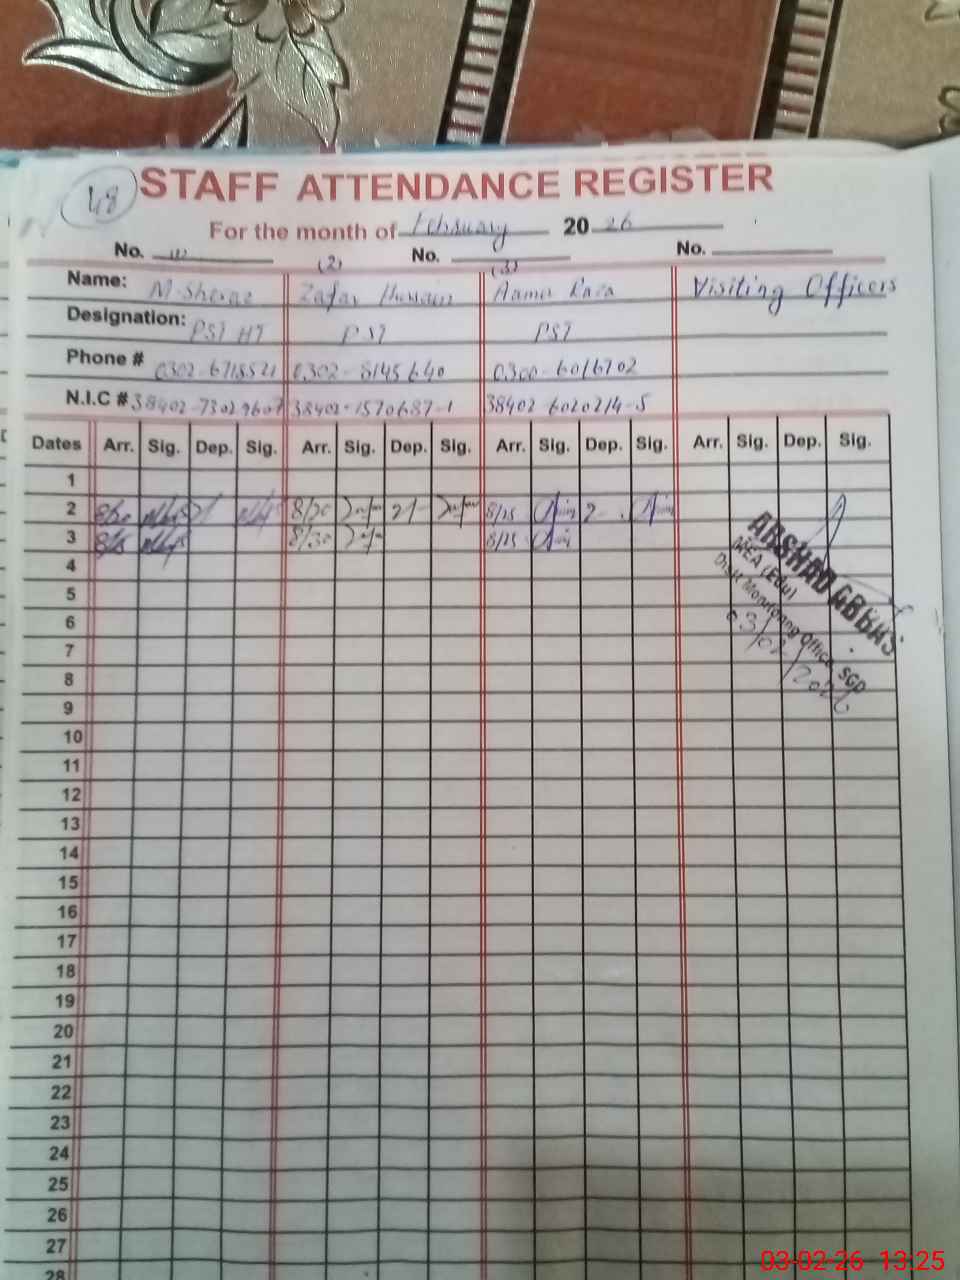 48
STAFF ATTENDANCE REGISTER
For the month of February 2026
No. (1) (2) No. (3) No.
Name: M. Sheraz Zafar Hussain Aamir Raza Visiting Officers
Designation: PST HT PST PST
Phone # 0302-6718521 0302-8145640 0300-6016702
N.I.C # 38402-73029607 38402-1570687-1 38402 6020214-5
Dates Arr. Sig. Dep. Sig. Arr. Sig. Dep. Sig. Arr. Sig. Dep. Sig. Arr. Sig. Dep. Sig.
1
2 8/20 2/ 8/20 2/- 8/25 2-
3 8/15 8/30 8/25
ARSHAD ABBAS
MEA (Edu)
Distt Monitoring Office, SGD
03/02/2026
4
5
6
7
8
9
10
11
12
13
14
15
16
17
18
19
20
21
22
23
24
25
26
27
28
03-02-26 13:25